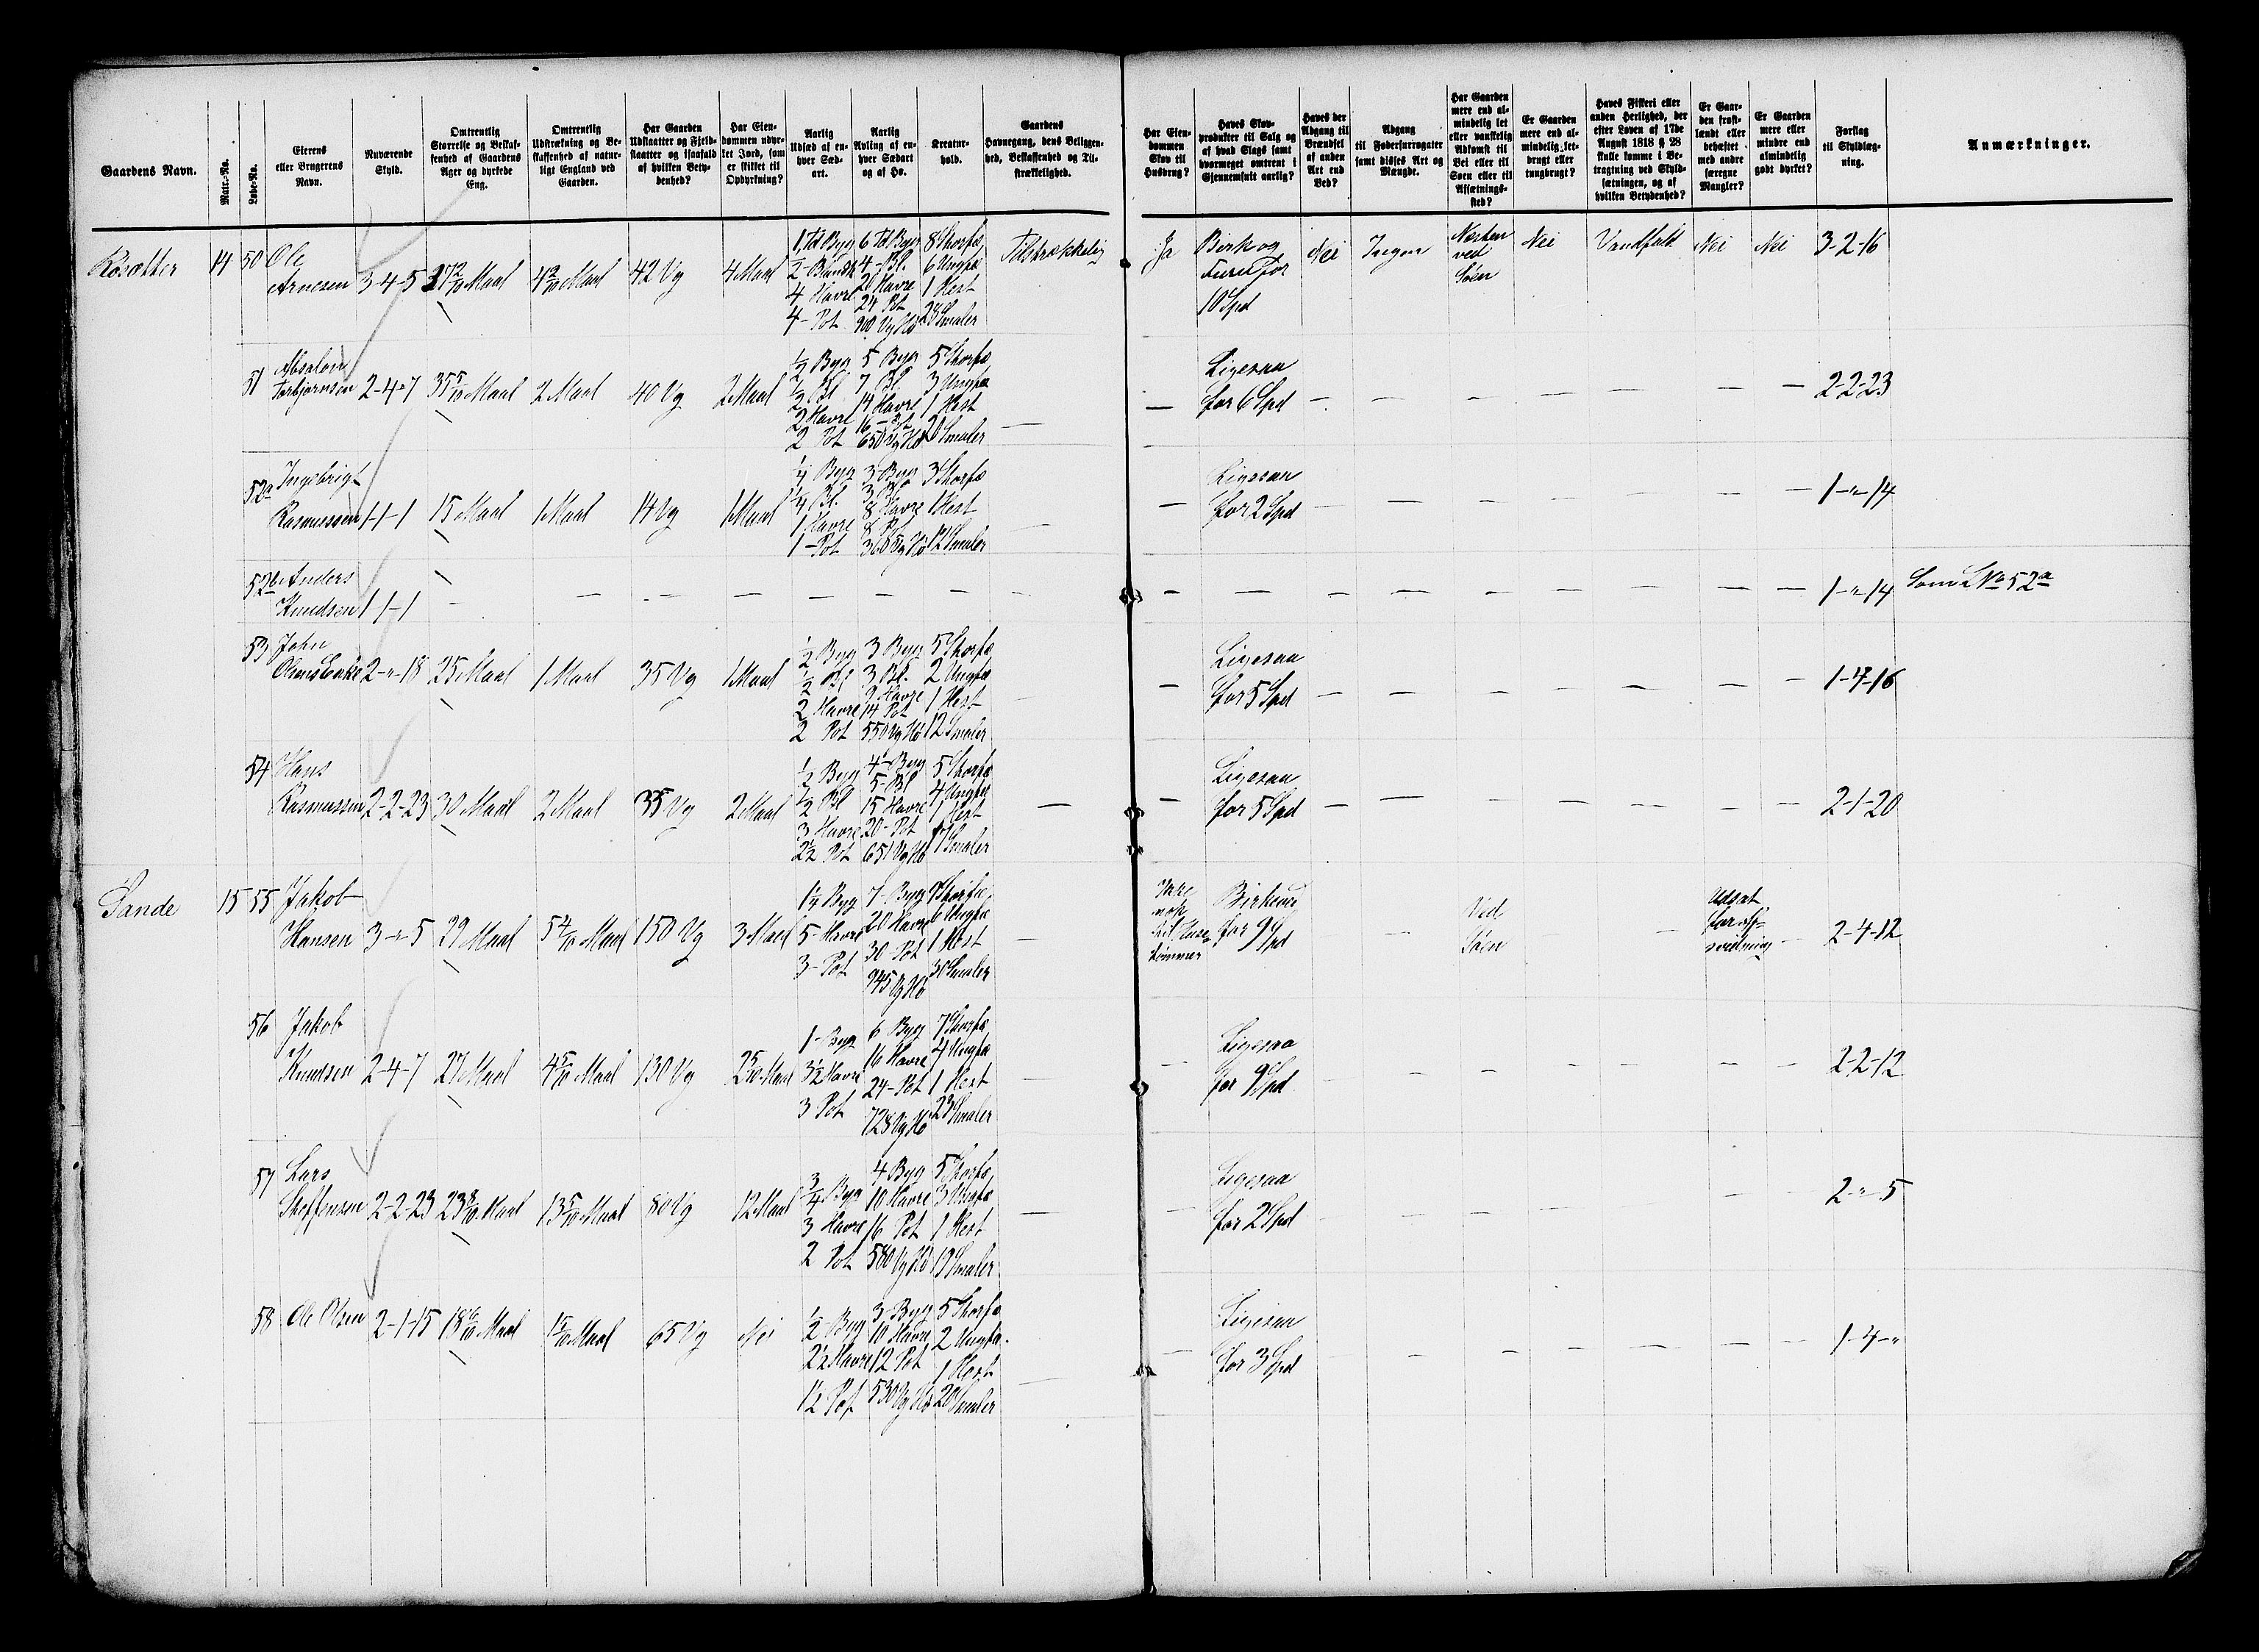 Gaardens Navn.
Matr.-No.
Løbe-No.
Eierens
eller Brugerens
Navn.
Nuværende
Skyld.
Omtrentlig
Størrelse og Beskaf-
fenhed af Gaardens
Ager og dyrkede
Eng.
Omtrentlig
Udstrækning og Be-
skaffenhed af natur-
ligt England ved
Gaarden.
Har Gaarden
Udslaatter og Fjeld-
slaatter og isaafald
af hvilken Bety-
denhed?
Har Eien-
dommen udyr-
ket Jord, som
er skikket til
Opdyrkning?
Aarlig
Udsæd af en-
hver Sæd-
art.
Aarlig
Avling af en-
hver Sædart
og af Hø.
Kreatur-
hold.
Gaardens
Havnegang, dens Beliggen-
hed, Beskaffenhed og Til-
strækkelighed.
Har Eien-
dommen
Skov til
Husbrug?
Haves Skov-
produkter til Salg og
af hvad Slags samt
hvormeget omtrent i
Gjennemsnit aarlig?
Haves der
Adgang til
Brændsel
af anden
Art end
Ved?
Adgang
til Fodersurrogater
samt disses Art og
Mængde.
Har Gaarden
mere end al-
mindelig let
eller vanskelig
Adkomst til
Vei eller til
Søen eller til
Afsætnings-
sted?
Er Gaarden
mere end al-
mindelig let-
brugt eller
tungbrugt?
Haves Fiskeri eller
anden Herlighed, der
efter Loven af 17de
August 1818 § 28
skulle komme i Be-
tragtning ved Skyld-
sætningen, og af
hvilken Betydenhed?
Er Gaar-
den frost-
lændt eller
behæftet
med andre
særegne
Mangler?
Er Gaarden
mere eller
mindre end
almindelig
godt dyrket?
Forslag
til Skyldlæg-
ning.
Anmærkninger.
14 50 Ole
Arnesen 3-4-5 37 2/10 Maal 4 2/10 Maal 42 Vg 4 Maal
1 Td Byg 6 Td Byg 8 Storfæ
1/2 - Blandk 4 - Bl. 6 Ungfæ
4 Havre 20 Havre 1 Hest
4 - Pot 24 Pot 23 Smaler
900 Vg Hø
Tilstrækkelig
Ja Birk og
Furu for
10 Spd
Nei Ingen Næsten
ved
Søen
Nei Vandfald Nei Nei 3-2-16
51 Absalon
Torbjørnsen 2-4-7 35 5/10 Maal 2 Maal 40 Vg 2 Maal
1/2 Byg 5 Byg 5 Storfæ
1/2 Bl 7 Bl. 3 Ungfæ
2 Havre 14 Havre 1 Hest
2 Pot 16 - Pot 20 Smaler
650 Vg Hø
— — Ligesaa
for 6 Spd — — — — — — — 2-2-23
52a Ingebrigt
Rasmussen 1-1-1 15 Maal 1 Maal 14 Vg 1 Maal
1/4 Byg 3 Byg 3 Storfæ
1/4 Bl. 3 Bl.
1 Havre 8 Havre 1 Hest
1 - Pot 8 Pot 12 Smaler
360 Vg Hø
— — Ligesaa
for 2 Spd — — — — — — — 1-"-14
52b Anders
Knudsen 1-1-1 — — — — — — — — — — — — — — — — — 1-"-14 Som L No 52a
53 John
Olsens Enke 2-"-18 25 Maal 1 Maal 35 Vg 1 Maal
1/2 Byg 3 Byg 5 Storfæ
1/2 Bl 3 Bl. 2 Ungfæ
2 Havre 9 Havre 1 Hest
2 Pot 14 Pot 12 Smaler
550 Vg Hø
— — Ligesaa
for 5 Spd — — — — — — — 1-4-16
54 Hans
Rasmussen 2-2-23 30 Maal 2 Maal 35 Vg 2 Maal
1/2 Byg 4 - Byg 5 Storfæ
1/2 Bl 5 - Bl 4 Ungfæ
3 Havre 15 Havre 1 Hest
2 1/2 Pot 20 - Pot 17 Smaler
651 Vg Hø
— — Ligesaa
for 5 Spd — — — — — — — 2-1-20
Sande 15 55 Jakob
Hansen 3-"-5 29 Maal 5 4/10 Maal 150 Vg 3 Maal
1 1/4 Byg 7 - Byg 9 Storfæ
5 - Havre 20 Havre 6 Ungfæ
3 - Pot 30 - Pot 1 Hest
945 Vg Hø 30 Smaler
— Ikke
nok
til Huse-
tømmer
Birkeved
for 9
Spd
— Ved
Søen
— — Udsat
for Af-
svidning
— 2-4-12
56 Jakob
Knudsen 2-4-7 27 Maal 4 5/10 Maal 130 Vg 2 5/10 Maal
1 - Byg 6 Byg 7 Storfæ
3 1/2 Havre 16 Havre 4 Ungfæ
3 Pot 24 - Pot 1 Hest
728 Vg Hø 23 Smaler
— — Ligesaa
for 9 Spd — — — — — — — 2-2-12
57 Lars
Steffensen 2-2-23 23 8/10 Maal 13 5/10 Maal 80 Vg 12 Maal
3/4 Byg 4 Byg 5 Storfæ
3 Havre 10 Havre 3 Ungfæ
2 Pot 16 Pot 1 Hest
580 Vg Hø 19 Smaler
— — Ligesaa
for 2 Spd — — — — — — — 2-"-5
58 Ole Olsen 2-1-15 18 6/10 Maal 1 5/10 Maal 65 Vg Nei
1/2 - Byg 3 - Byg 5 Storfæ
2 1/2 Havre 10 Havre 2 Ungfæ
1 1/2 Pot 12 Pot 1 Hest
530 Vg Hø 20 Smaler
— — Ligesaa
for 3 Spd — — — — — — — 1-4-"